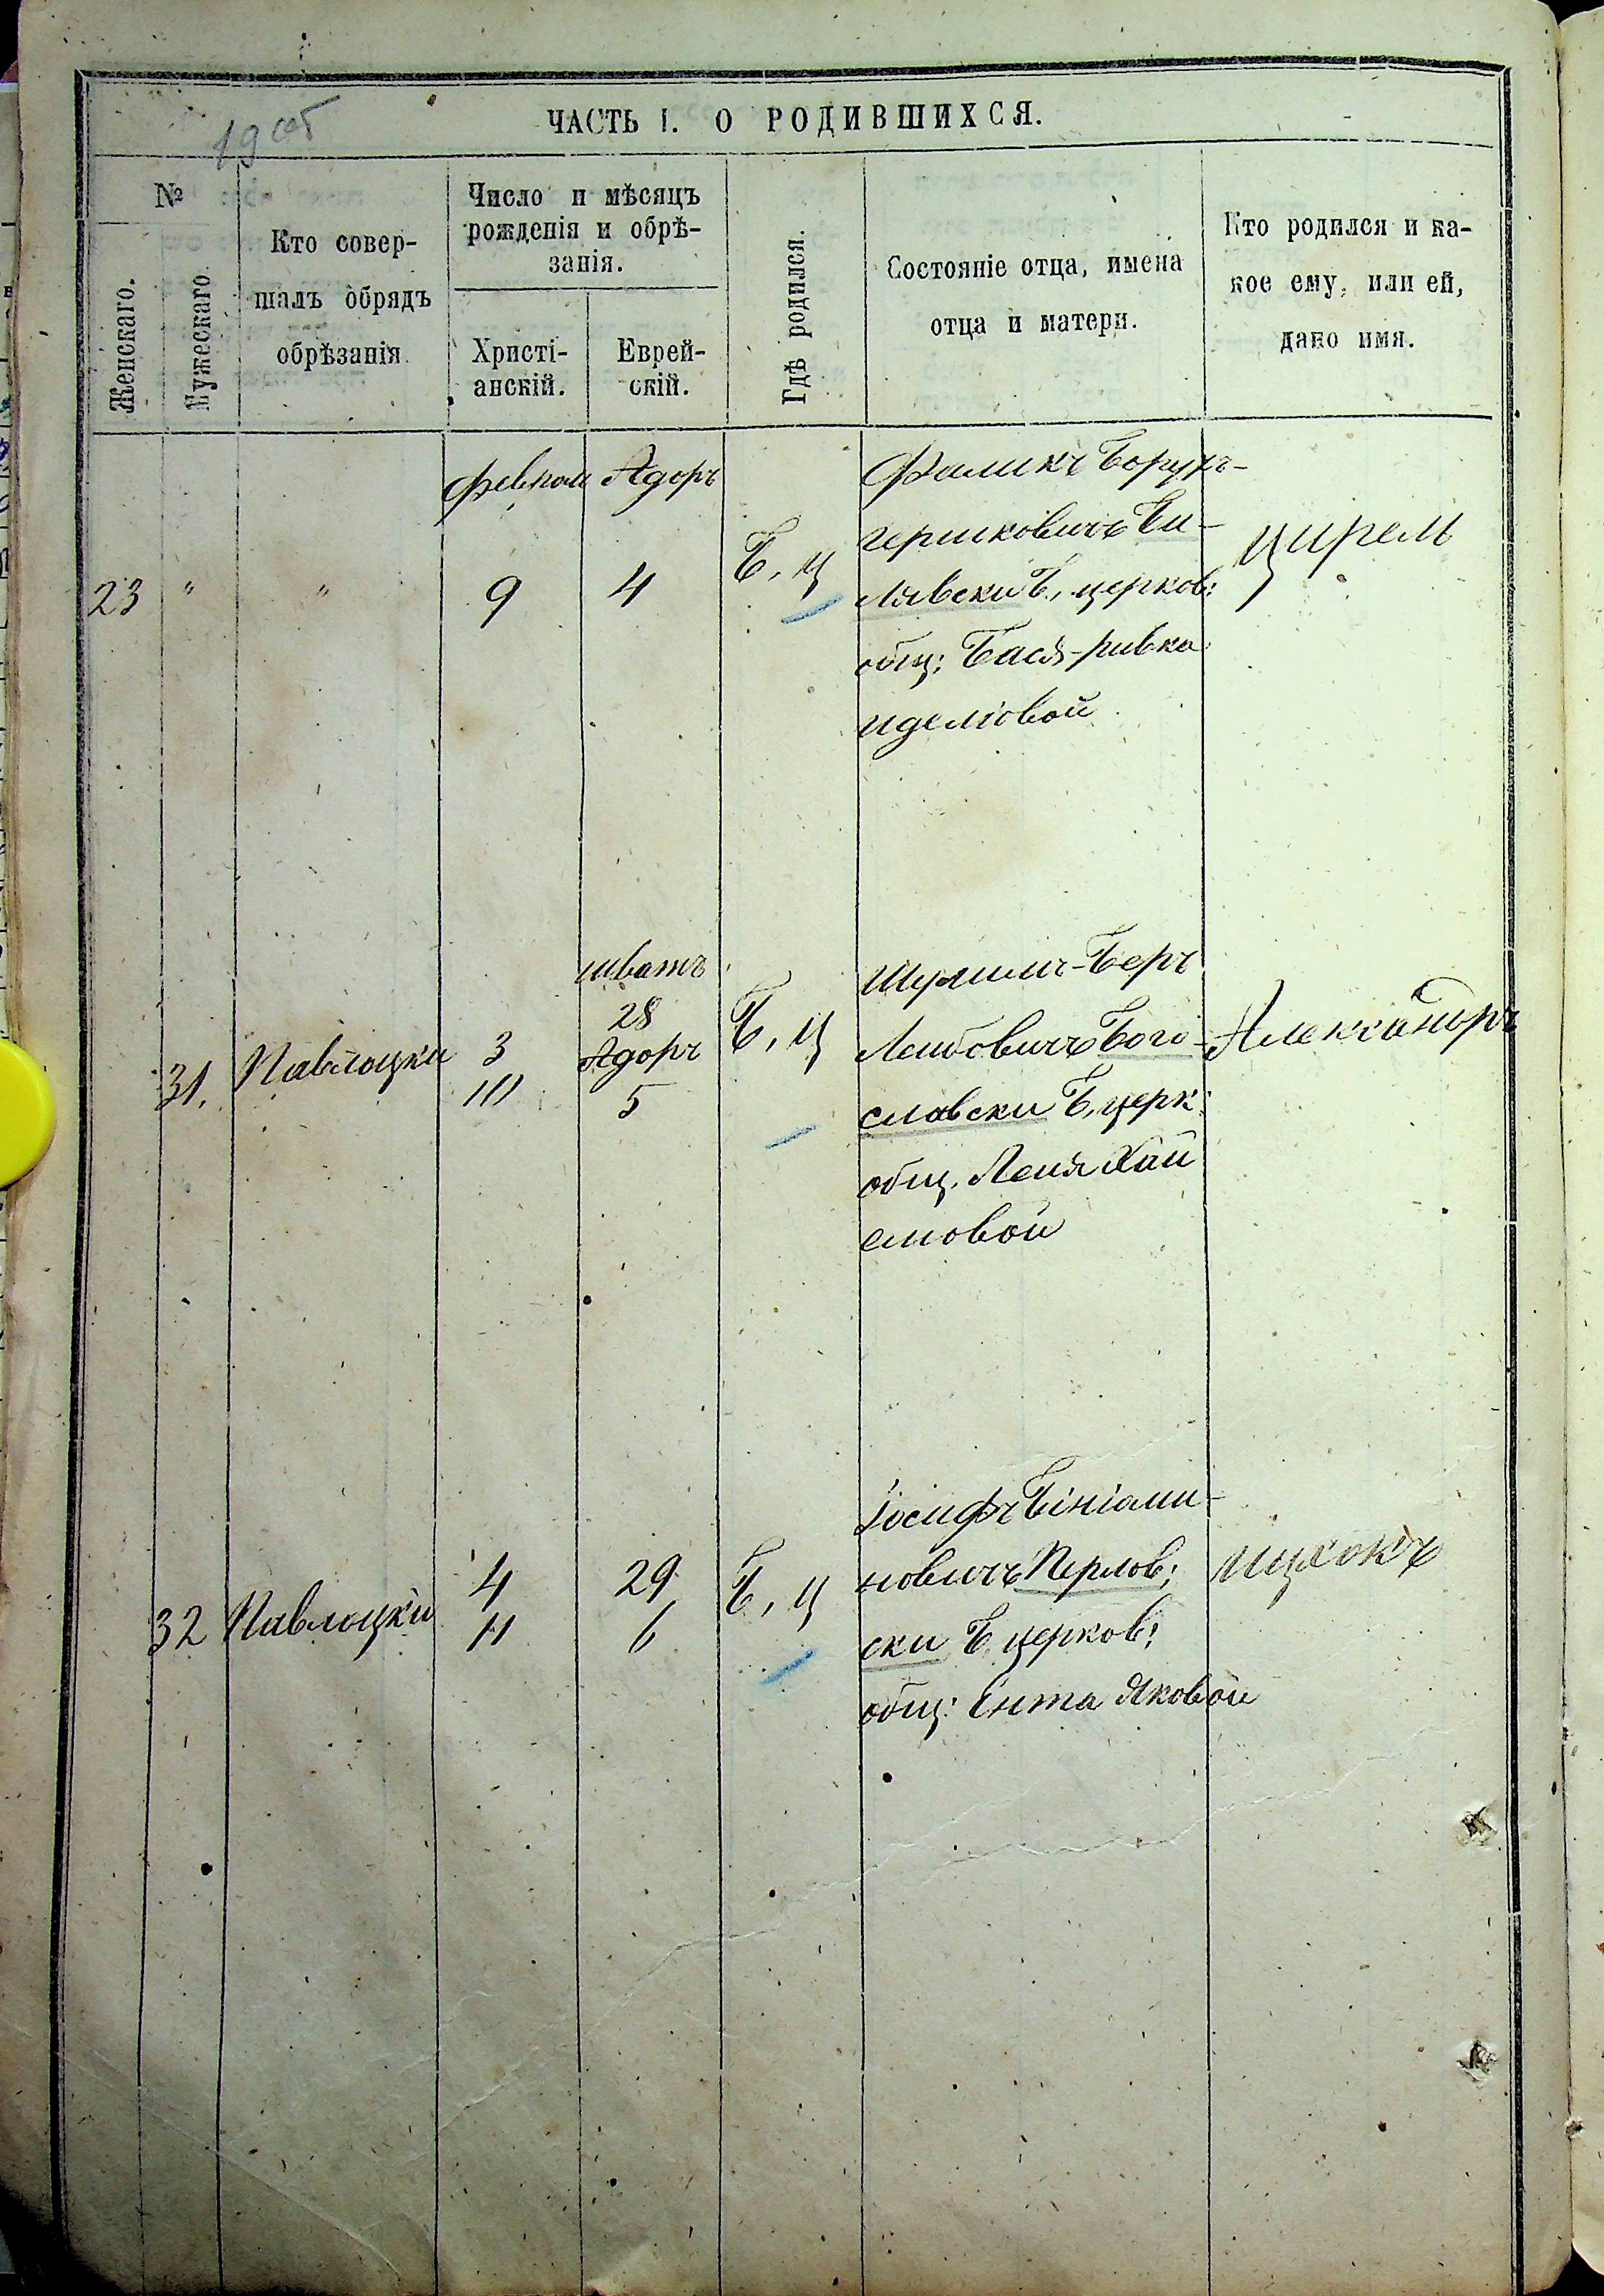 19 об
ЧАСТЬ I. О РОДИВШИХСЯ.
№
Женскаго.
Мужескаго
Кто совер-
шалъ обрядъ
обрѣзанія.
Число и мѣсяцъ
рожденія и обрѣ-
занія.
Христі-
анскій.
Еврей-
скій.
Гдѣ родился.
Состояніе отца, имена
отца и матери.
Кто родился и ка-
кое ему, или ей,
дано имя.
23 " "
Феврал Адоръ
9 4
Б, Ц
Фаликъ Борухъ-
гершковичъ Би-
лявски Б, церков:
общ: Бася-ривка
иделiовой
Цирель
31. Павлоцки
3
10
шватъ
28
Адоръ
5
Б, Ц
Шулимъ-Беръ
Лейбовичъ Бого-
славски Б, церк:
общ. Леия Хай
емовой
Александръ
32 Павлоцки
4
11
29
6
Б, Ц
Іосифъ Бініами-
новичъ Перлов;
ски Б, церков:
общ: Ента Яковой
Ицхокъ